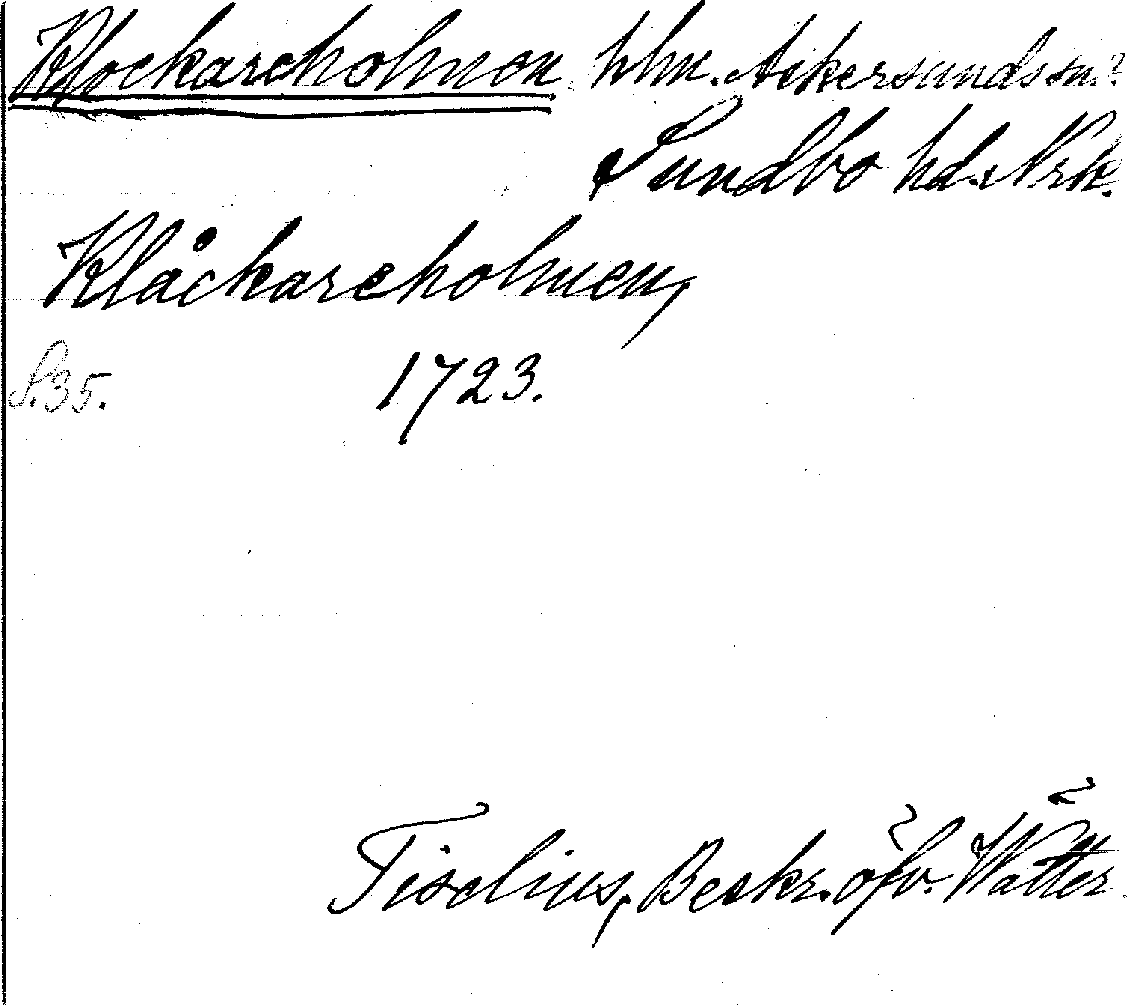 Klockareholmen hlm. Askersunds sn?
Sundbo hd. Nrk.
Klåckareholmen,
S. 35. 1723.
Tiselius, Beskr. öfv. Wätter